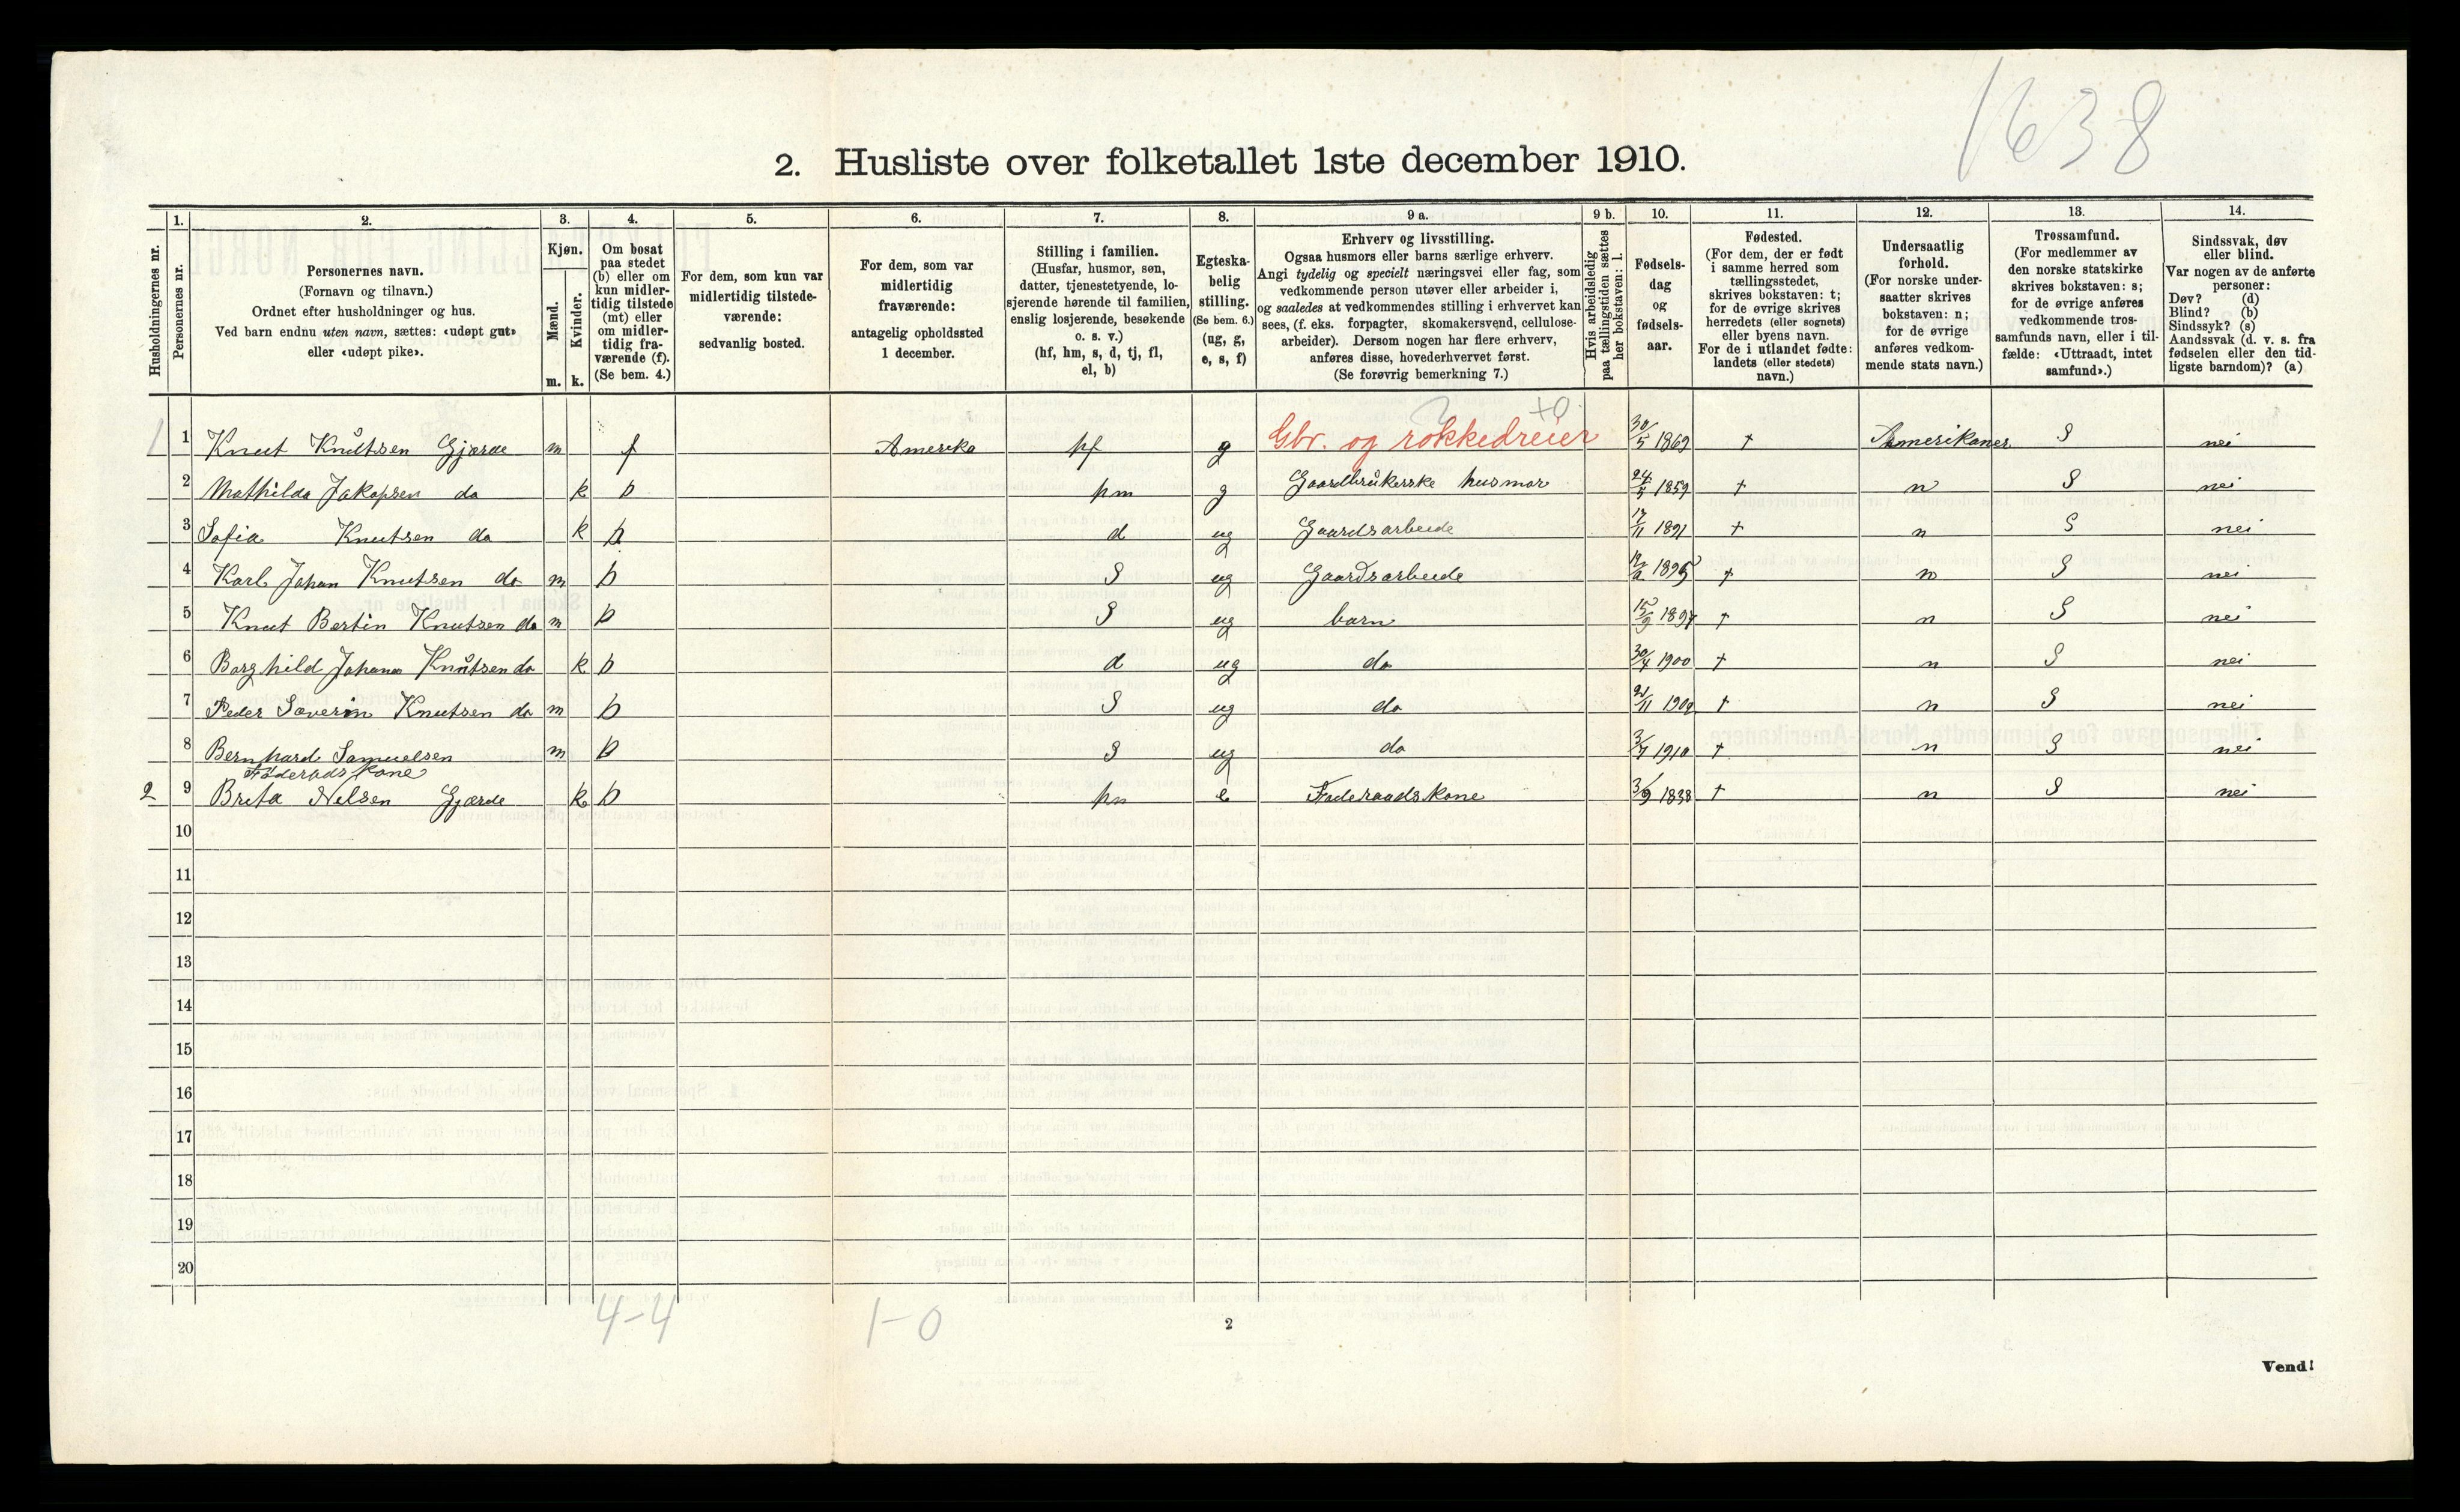 1638
2. Husliste over folketallet 1ste december 1910.
1. 2. 3. 4. 5. 6. 7. 8. 9 a. 9 b. 10. 11. 12. 13. 14.
Husholdningernes nr.
Personernes nr.
Personernes navn.
(Fornavn og tilnavn.)
Ordnet efter husholdninger og hus.
Ved barn endnu uten navn, sættes: «udøpt gut»
eller «udøpt pike».
Kjøn.
Mænd.
Kvinder.
m. k.
Om bosat
paa stedet
(b) eller om
kun midler-
tidig tilstede
(mt) eller
om midler-
tidig fra-
værende (f).
(Se bem. 4.)
For dem, som kun var
midlertidig tilstede-
værende:
sedvanlig bosted.
For dem, som var
midlertidig
fraværende:
antagelig opholdssted
1 december.
Stilling i familien.
(Husfar, husmor, søn,
datter, tjenestetyende, lo-
sjerende hørende til familien,
enslig losjerende, besøkende
o. s. v.)
(hf, hm, s, d, tj, fl,
el, b)
Egteska-
belig
stilling.
(Se bem. 6.)
(ug, g,
e, s, f)
Erhverv og livsstilling.
Ogsaa husmors eller barns særlige erhverv.
Angi tydelig og specielt næringsvei eller fag, som
vedkommende person utøver eller arbeider i,
og saaledes at vedkommendes stilling i erhvervet kan
sees, (f. eks. forpagter, skomakersvend, cellulose-
arbeider). Dersom nogen har flere erhverv,
anføres disse, hovederhvervet først.
(Se forøvrig bemerkning 7.)
Hvis arbeidsledig
paa tællingstiden sættes
her bokstaven: l.
Fødsels-
dag
og
fødsels-
aar.
Fødested.
(For dem, der er født
i samme herred som
tællingsstedet,
skrives bokstaven: t;
for de øvrige skrives
herredets (eller sognets)
eller byens navn.
For de i utlandet fødte:
landets (eller stedets)
navn.)
Undersaatlig
forhold.
(For norske under-
saatter skrives
bokstaven: n;
for de øvrige
anføres vedkom-
mende stats navn.)
Trossamfund.
(For medlemmer av
den norske statskirke
skrives bokstaven: s;
for de øvrige anføres
vedkommende tros-
samfunds navn, eller i til-
fælde: «Uttraadt, intet
samfund».)
Sindssvak, døv
eller blind.
Var nogen av de anførte
personer:
Døv? (d)
Blind? (b)
Sindssyk? (s)
Aandssvak (d. v. s. fra
fødselen eller den tid-
ligste barndom)? (a)
+0
1 1 Knut Knutsen Gjærde m f Amerika hf g Gbr. og rokkedreier 30/5 1869 t Amerikaner S nei
2 Mathilda Jakopsen do k b hm g Gaardbrukerske husmor 24/5 1859 t n S nei
3 Sofia Knutsen do k b d ug Gaardsarbeide 17/11 1891 t n S nei
4 Karl Johan Knutsen do m b S ug Gaardsarbeide 1895 t n S nei
5 Knut Bertin Knutsen do m b S ug barn 15/9 1897 t n S nei
6 Borghild Johana Knutsen do k b d ug do 30/4 1900 t n S nei
7 Peder Severin Knutsen do m b S ug do 21/11 1902 t n S nei
8 Bernhard Samuelsen m b S ug do 3/7 1910 t n S nei
Føderadskone
2 9 Brita Nelsen Gjærde k b hm e Foderaadskone 3/9 1838 t n S nei
10
11
12
13
14
15
16
17
18
19
20
4-4 1-0
2
Vend!